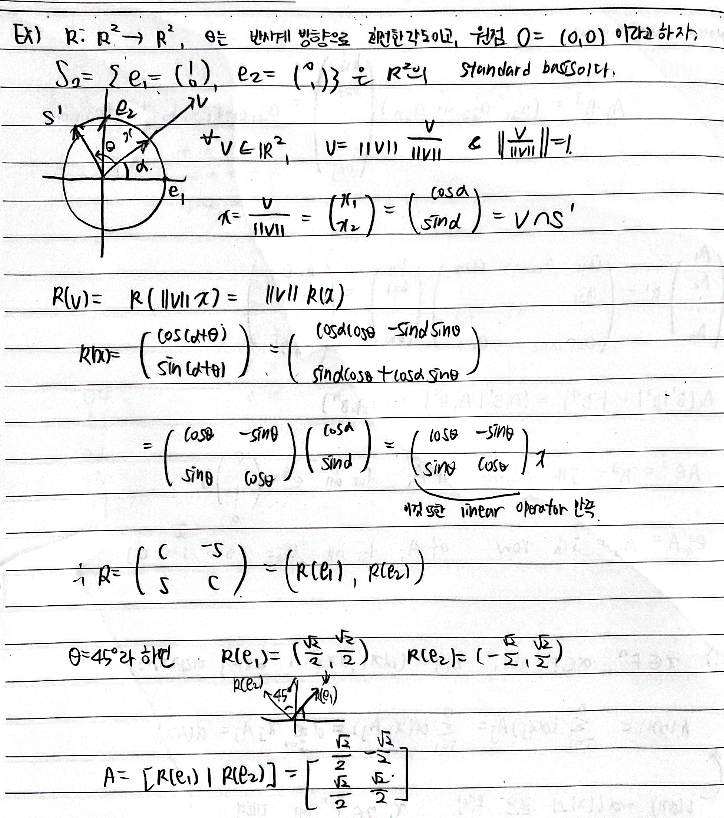 Ex) R: R² → R², θ는 반시계 방향으로 회전한 각도이고, 원점 O = (0,0) 이라고 하자.
S₂ = { e₁ = (1 0), e₂ = (0 1) } 는 R²의 standard basis이다.
S' e₂ v x θ α e₁
∀v ∈ ℝ², v = ||v|| v/||v|| & ||v/||v|||| = 1.
x = v/||v|| = (x₁ x₂) = (cosα sinα) = v∩S'
R(v) = R(||v||x) = ||v|| R(x)
R(x) = (cos(α+θ) sin(α+θ)) = (cosαcosθ - sinαsinθ sinαcosθ + cosαsinθ)
= (cosθ -sinθ sinθ cosθ)(cosα sinα) = (cosθ -sinθ sinθ cosθ) x
이것 또한 linear operator 만족
∴ R = (c -s s c) = (R(e₁), R(e₂))
θ=45°라 하면 R(e₁) = (√2/2, √2/2) R(e₂) = (-√2/2, √2/2)
R(e₂) 45° R(e₁)
A = [R(e₁) | R(e₂)] = [√2/2 -√2/2 √2/2 √2/2]